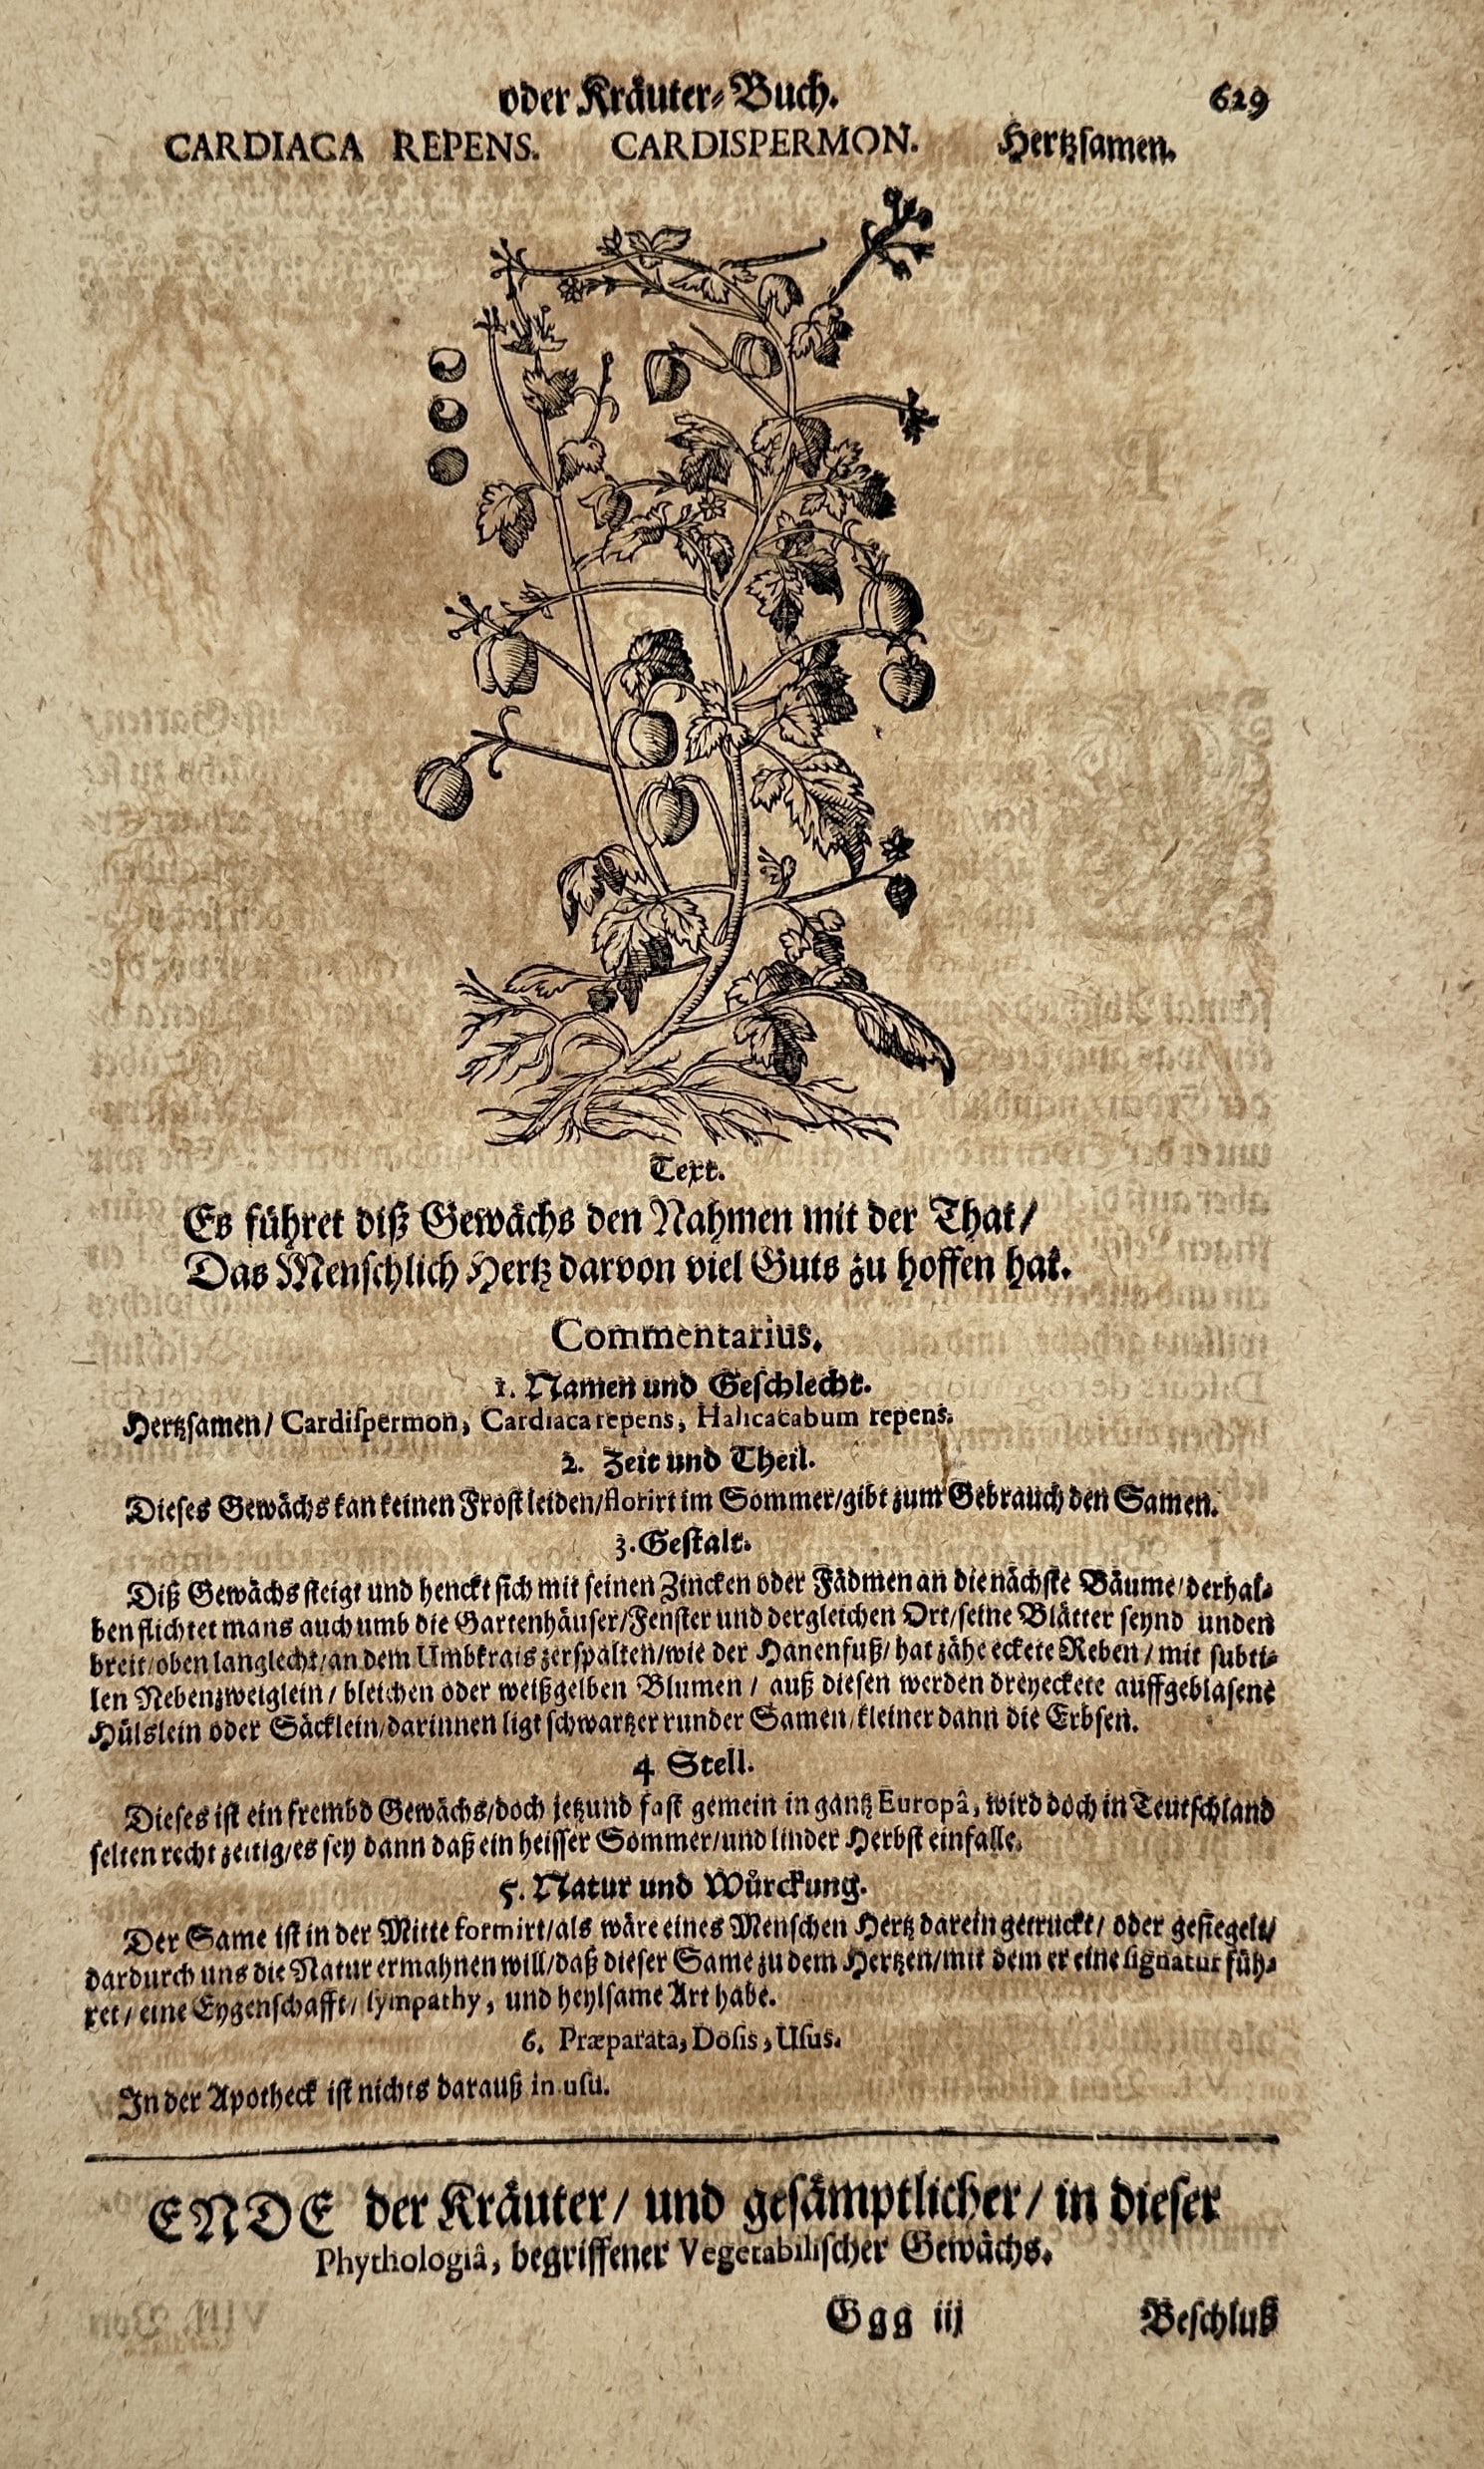 oder Kräuter-Buch. 629
CARDIACA REPENS. CARDISPERMON. Hertzsamen.
Text.
Es führet diß Gewächs den Nahmen mit der That/
Das Menschlich Hertz darvon viel Guts zu hoffen hat.
Commentarius.
1. Namen und Geschlecht.
Hertzsamen/ Cardispermon, Cardiaca repens, Halicacabum repens.
2. Zeit und Theil.
Dieses Gewächs kan keinen Frost leiden/florirt im Sommer/gibt zum Gebrauch den Samen.
3. Gestalt.
Diß Gewächs steigt und henckt sich mit seinen Zincken oder Fädmen an die nächste Bäume/derhal-
ben flichtet mans auch umb die Gartenhäuser/Fenster und dergleichen Ort/seine Blätter seynd unden
breit/oben langlecht/an dem Umbkrais zerspalten/wie der Hanenfuß/hat zähe eckete Reben/mit subti-
len Nebenzweiglein/bleichen oder weißgelben Blumen/ auß diesen werden dreyeckete auffgeblasene
Hülslein oder Säcklein/darinnen ligt schwartzer runder Samen/kleiner dann die Erbsen.
4 Stell.
Dieses ist ein frembd Gewächs/doch jetzund fast gemein in gantz Europâ, wird doch in Teutschland
selten recht zeitig/es sey dann daß ein heisser Sommer/und linder Herbst einfalle.
5. Natur und Würckung.
Der Same ist in der Mitte formirt/als wäre eines Menschen Hertz darein getruckt/ oder gesiegelt/
dardurch uns die Natur ermahnen will/daß dieser Same zu dem Hertzen/mit dem er eine signatur füh-
ret/eine Eygenschafft/ sympathy, und heylsame Art habe.
6. Præparata, Dosis, Usus.
In der Apotheck ist nichts darauß in usu.
ENDE der Kräuter/ und gesämptlicher/ in dieser
Phythologiâ, begriffener Vegetabilischer Gewächs.
Ggg iij Beschluß